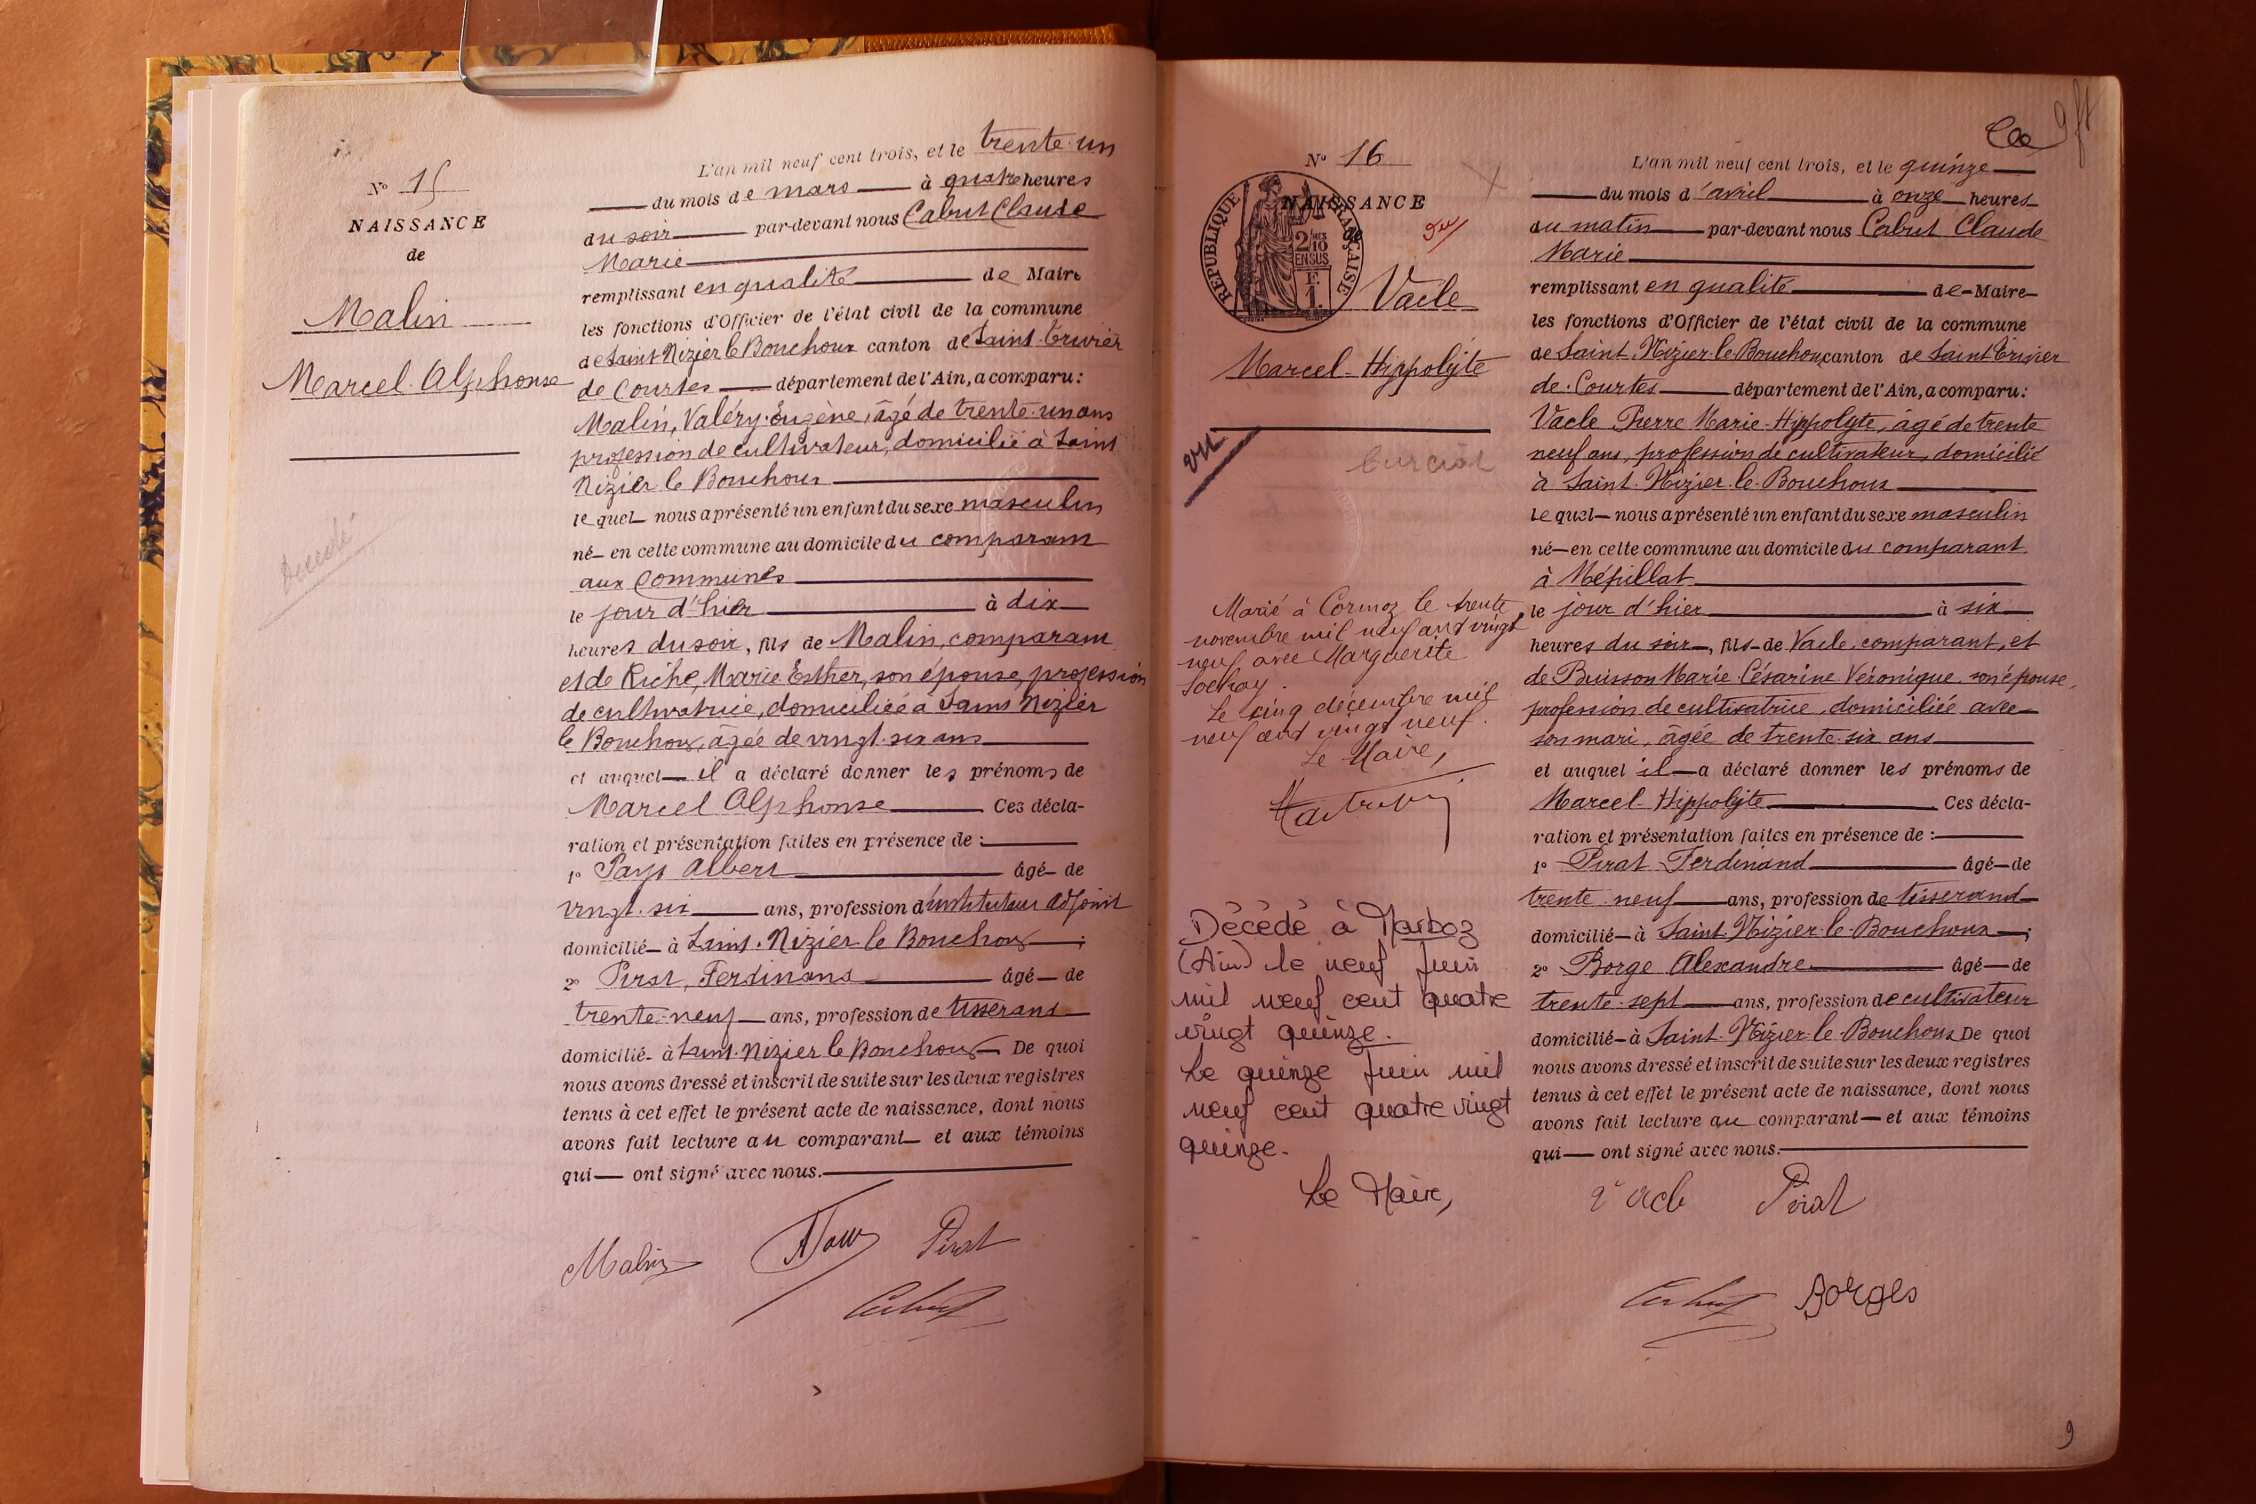 N° 15
NAISSANCE
de
Malin
Marcel Alphonse
Décédé
L'an mil neuf cent trois, et le trente-un
du mois de mars à quatre heures
du soir par-devant nous Cabut Claude
Marie
remplissant en qualité de Maire
les fonctions d'Officier de l'état civil de la commune
de Saint Nizier le Bouchoux canton de Saint-Trivier
de Courtes département de l'Ain, a comparu:
Malin, Valéry Eugène, âgé de trente-un ans
profession de cultivateur, domicilié à Saint
Nizier le Bouchoux
lequel nous a présenté un enfant du sexe masculin
né en cette commune au domicile du comparant
aux Communes
le jour d'hier à dix
heures du soir, fils de Malin, comparant
et de Riche, Marie Esther, son épouse, profession
de cultivatrice, domiciliée à Saint Nizier
le Bouchoux, âgée de vingt-six ans
et auquel il a déclaré donner les prénoms de
Marcel Alphonse Ces décla-
ration et présentation faites en présence de :
1° Albert âgé de
vingt-six ans, profession d'instituteur adjoint
domicilié à Saint-Nizier le Bouchoux ;
2° Pirat, Ferdinand âgé de
trente-neuf ans, profession de tisserand
domicilié à Saint-Nizier le Bouchoux De quoi
nous avons dressé et inscrit de suite sur les deux registres
tenus à cet effet le présent acte de naissance, dont nous
avons fait lecture au comparant et aux témoins
qui ont signé avec nous.
Malin Pirat
Cabut
N° 16
NAISSANCE
de
RÉPUBLIQUE FRANÇAISE
2/10 EN SUS
F 1
Vacle
Marcel-Hippolyte
vu
Marié à Cormoz le trente
novembre mil neuf cent vingt
neuf avec Marguerite
Le cinq décembre mil
neuf cent vingt neuf.
Le Maire,
Décédé à Marboz
(Ain) le neuf juin
mil neuf cent quatre
vingt quinze.
Le quinze juin mil
neuf cent quatre vingt
quinze.
Le Maire,
L'an mil neuf cent trois, et le quinze
du mois d'avril à onze heures
du matin par-devant nous Cabut Claude
Marie
remplissant en qualité de Maire
les fonctions d'Officier de l'état civil de la commune
de Saint-Nizier-le-Bouchoux canton de Saint Trivier
de-Courtes département de l'Ain, a comparu:
Vacle Pierre Marie-Hippolyte, âgé de trente
neuf ans, profession de cultivateur, domicilié
à Saint-Nizier-le-Bouchoux
lequel nous a présenté un enfant du sexe masculin
né en cette commune au domicile du comparant
à Mépillat
le jour d'hier à six
heures du soir, fils de Vacle, comparant, et
de Buisson Marie Césarine Véronique, son épouse,
profession de cultivatrice, domiciliée avec
son mari, âgée de trente-six ans
et auquel il a déclaré donner les prénoms de
Marcel-Hippolyte Ces décla-
ration et présentation faites en présence de :
1° Pirat Ferdinand âgé de
trente-neuf ans, profession de tisserand
domicilié à Saint-Nizier-le-Bouchoux ;
2° Borge Alexandre âgé de
trente-sept ans, profession de cultivateur
domicilié à Saint-Nizier-le-Bouchoux De quoi
nous avons dressé et inscrit de suite sur les deux registres
tenus à cet effet le présent acte de naissance, dont nous
avons fait lecture au comparant et aux témoins
qui ont signé avec nous.
Vacle Pirat
Cabut Borges
9